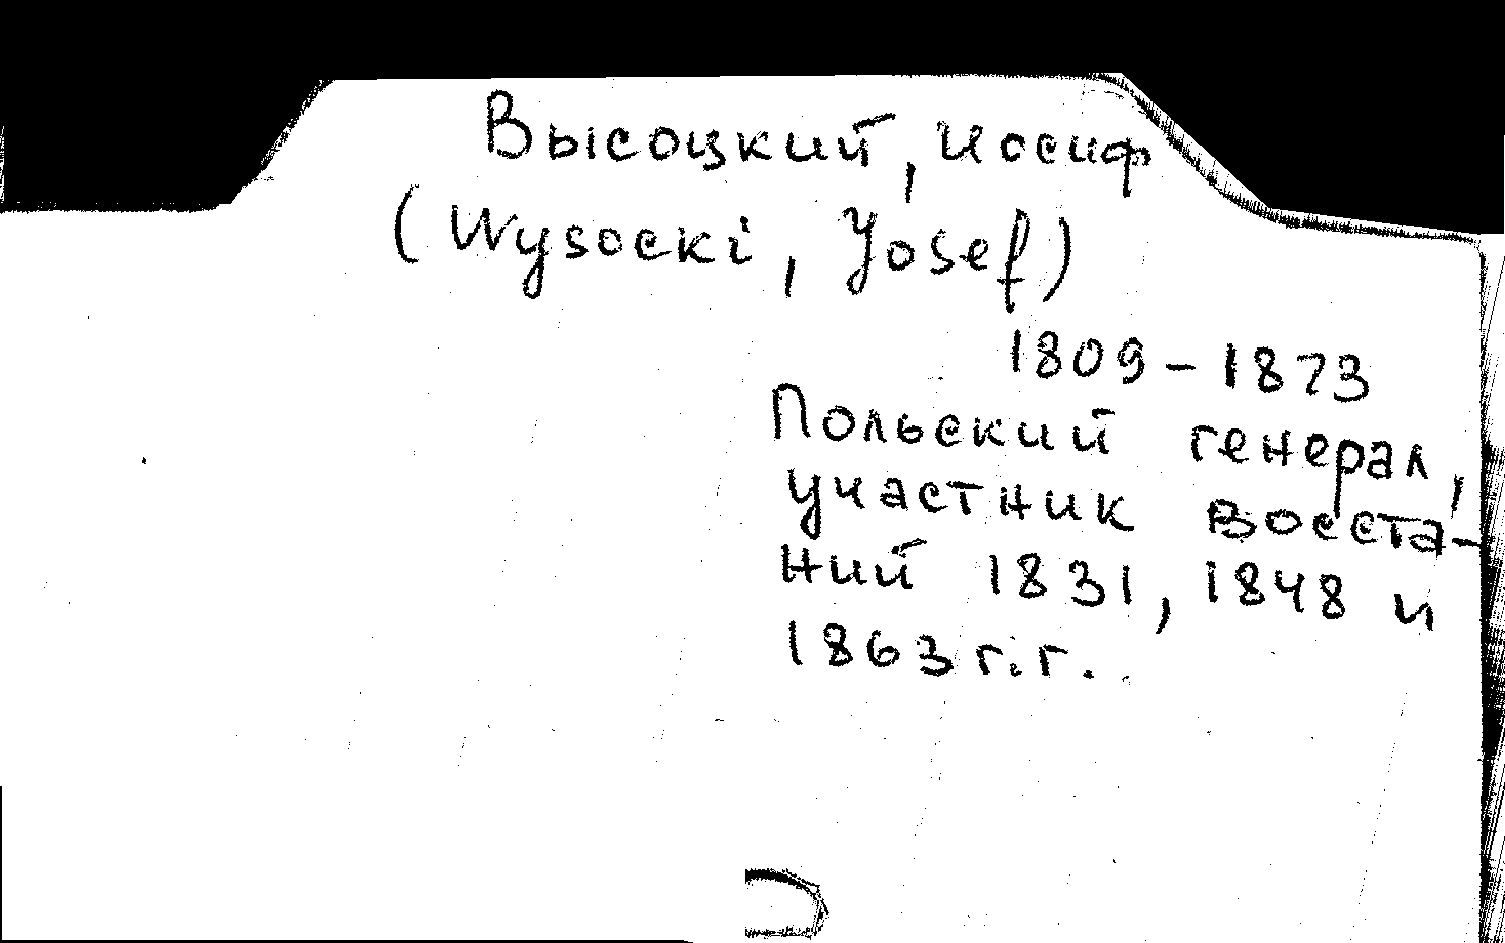 Высоцкий, Иосиф
(Wysocki, Josef)
1809-1873
Польский генерал,
участник восста-
ний 1831, 1848 и
1863 г.г.